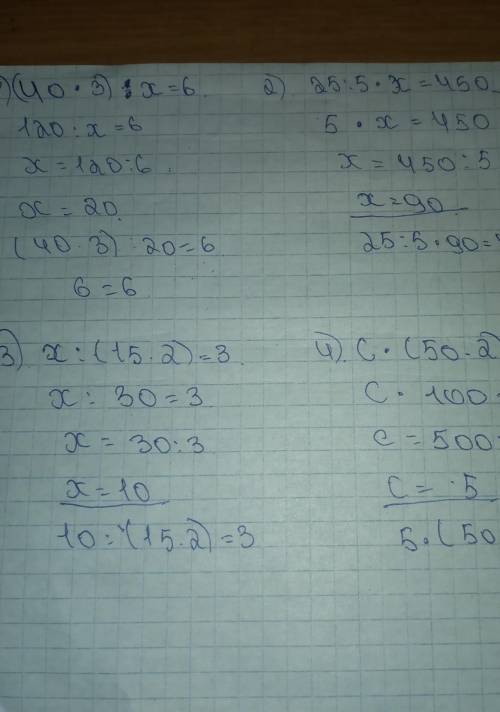 1)(40 · 3) : x = 6
120 : x = 6
x = 120 : 6
x = 20
(40 · 3) : 20 = 6
6 = 6
2) 25 : 5 · x = 450
5 · x = 450
x = 450 : 5
x = 90
25 : 5 · 90 =
3) x : (15 · 2) = 3
x : 30 = 3
x = 30 : 3
x = 10
10 : (15 · 2) = 3
4) c · (50 · 2)
c · 100
c = 500
c = 5
5 · (50